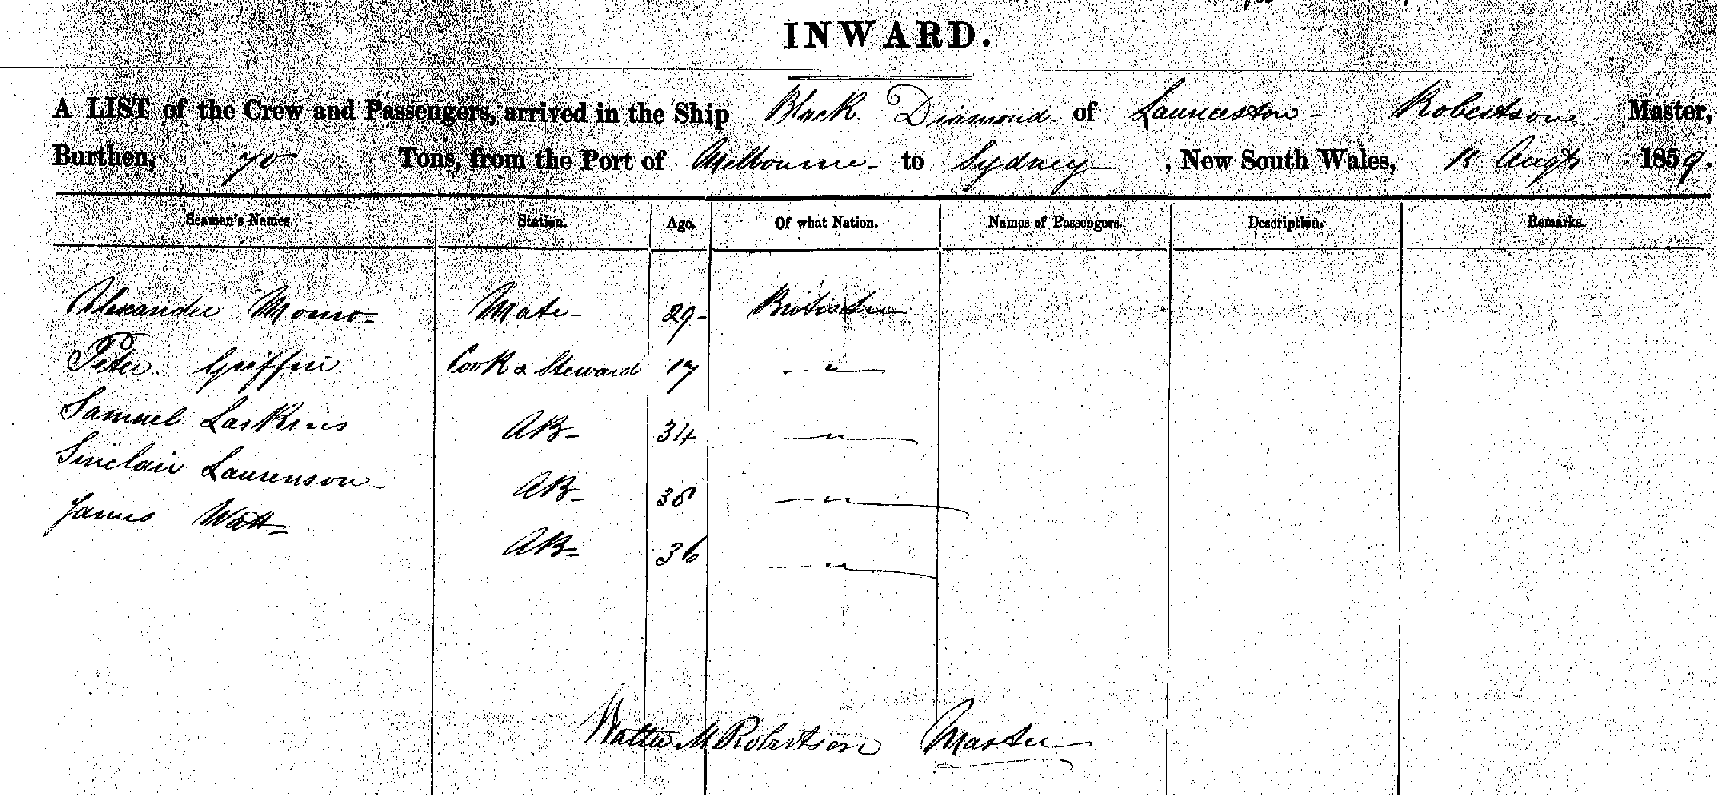 INWARD.
A LIST of the Crew and Passengers, arrived in the Ship Black Diamond of Launceston - Robertson Master,
Burthen, 70 Tons, from the Port of Melbourne - to Sydney, New South Wales, Augt 1859.
Seamen's Names Station. Age. Of what Nation. Names of Passengers. Description. Remarks.
Alexander Monro - Mate - 29 -
Peter Griffin Cook & Steward 17 "
Samuel Larkins AB - 34 "
Sinclair Laurenson AB - "
James Watt AB - 36 "
Walter M Robertson Master